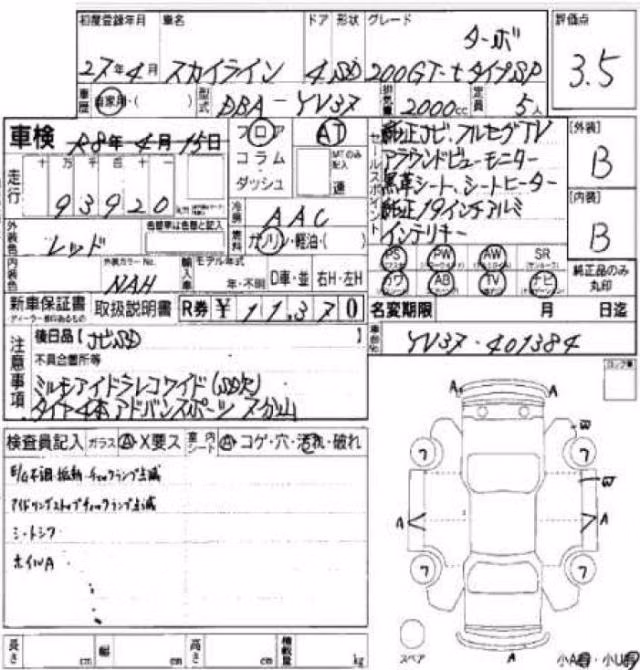 初度登録年月 車名 ドア 形状 グレード 評価点
27年4月 スカイライン 4 SD ターボ 200GT-t タイプSP 3.5
車歴 自家用・( ) 型式 DBA-YV37 排気量 2000cc 定員 5人
車検 R8年4月15日 フロア コラム・ダッシュ AT MTのみ記入 速
走行 十 万 千 百 十 一
93920
セールスポイント
純正ナビ、フルセグTV
アラウンドビューモニター
黒革シート、シートヒーター
純正19インチアルミ
インテリキー
[外装] B
[内装] B
冷房 AAC
外装色 レッド 色替車は色替と記入 燃料 ガソリン・軽油・( )
内装色 外装カラーNo. NAH 輸入車 モデル年式 年・不明 D車・並 右H・左H
PS PW AW SR
カワ AB TV ナビ
純正品のみ丸印
新車保証書 取扱説明書 R券 ¥ 11370
名変期限 月 日迄
車台No. YV37-401384
注意事項
後日品【ナビSD
不具合箇所等
ミルモアイドラレコワイド(SD欠)
タイヤ4本アドバンスポーツ
検査員記入 ガラス A・X要ス 室内シート A・コゲ・穴・汚れ・破れ
E/G不調・振動・チェックランプ点滅
アイドリングストップチェックランプ点滅
シートシワ
ホイルA
A
W
W
A
A
フ
フ
フ
フ
A
スペア
長さ cm 幅 cm 高さ cm 積載量 kg
小A・小U